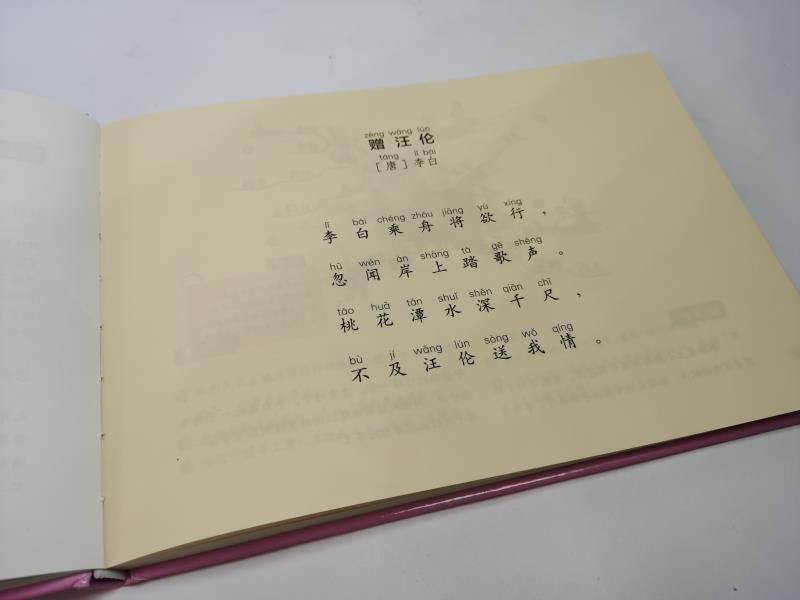 zèng wāng lún
赠汪伦
táng lǐ bái
[唐]李白
lǐ bái chéng zhōu jiāng yù xíng
李白乘舟将欲行，
hū wén àn shàng tà gē shēng
忽闻岸上踏歌声。
táo huā tán shuǐ shēn qiān chǐ
桃花潭水深千尺，
bù jí wāng lún sòng wǒ qíng
不及汪伦送我情。